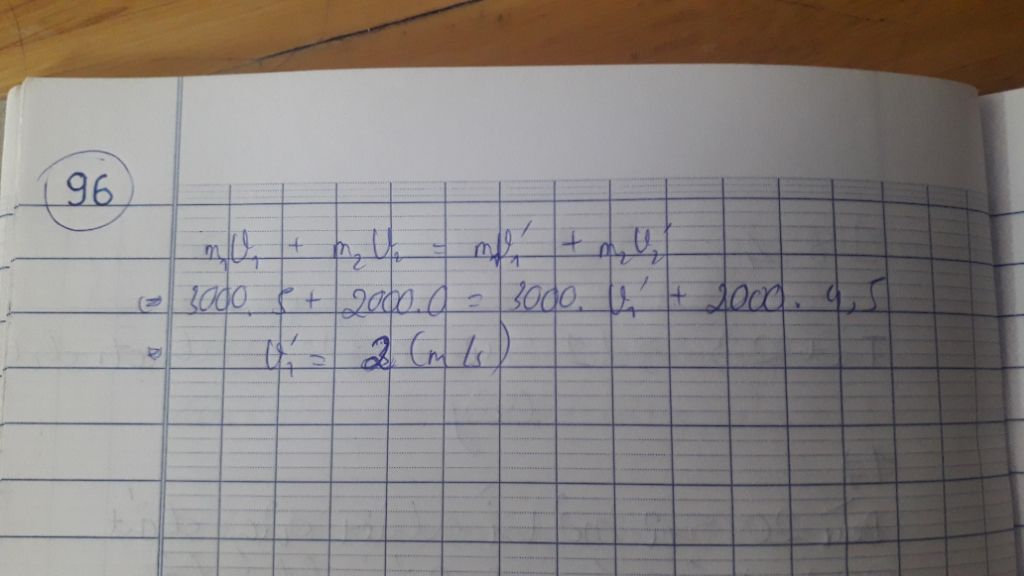 96
m₁v₁ + m₂v₂ = m₁v₁' + m₂v₂'
(= 3000. 5 + 2000.0 = 3000. v₁' + 2000. 4,5
v₁' = 2 (m/s)